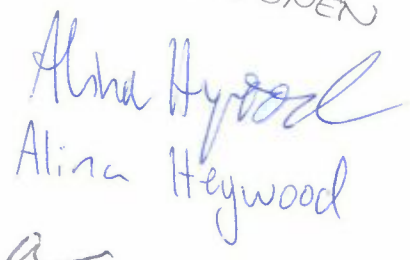 Alina Hywood
Alina Heywood